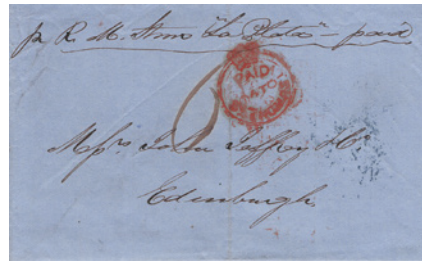 pr R. M. Stmr "La Plata" – paid
PAID
AT
ST THOMAS
Messrs John Jeffrey & Co
Edinburgh